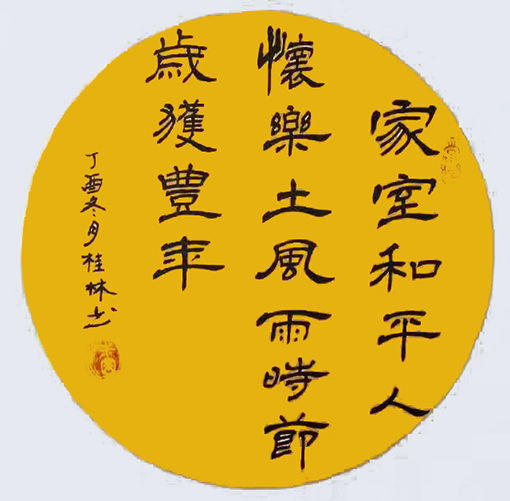 家室和平人
懷樂土風雨時節
歲獲豐年
丁酉冬月桂林书